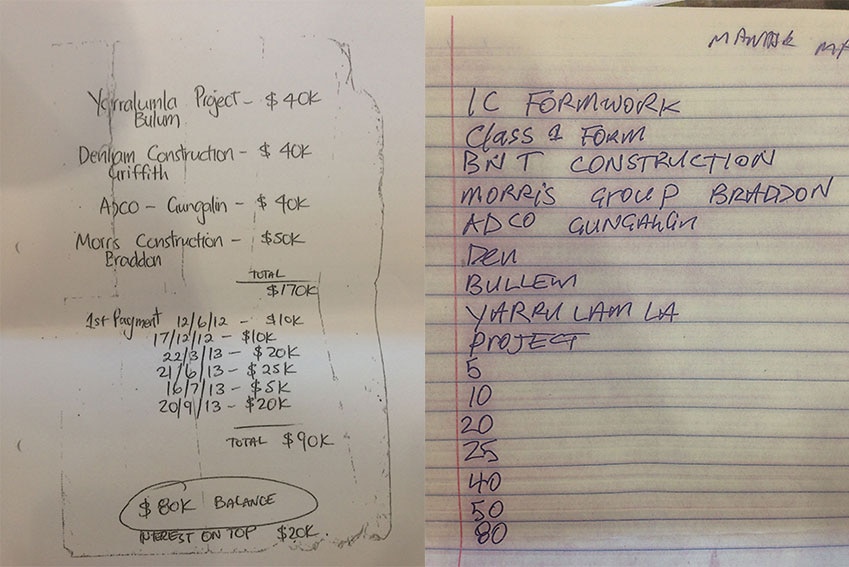 Yarralumla Project - $40K
Bulum
Denham Construction - $40K
Griffith
ADCO - Gungalin - $40K
Morris Construction - $50K
Braddon
TOTAL
$170K
1st Payment 12/6/12 - $10K
17/12/12 - $10K
22/3/13 - $20K
21/6/13 - $25K
16/7/13 - $5K
20/9/13 - $20K
TOTAL $90K
$80K BALANCE
INTEREST ON TOP $20K.
1C FORMWORK
Class 1 FORM
BNT CONSTRUCTION
MORRIS GROUP BRADDON
ADCO GUNGAHLIN
Den
BULLEM
YARRULAMLA
PROJECT
5
10
20
25
40
50
80